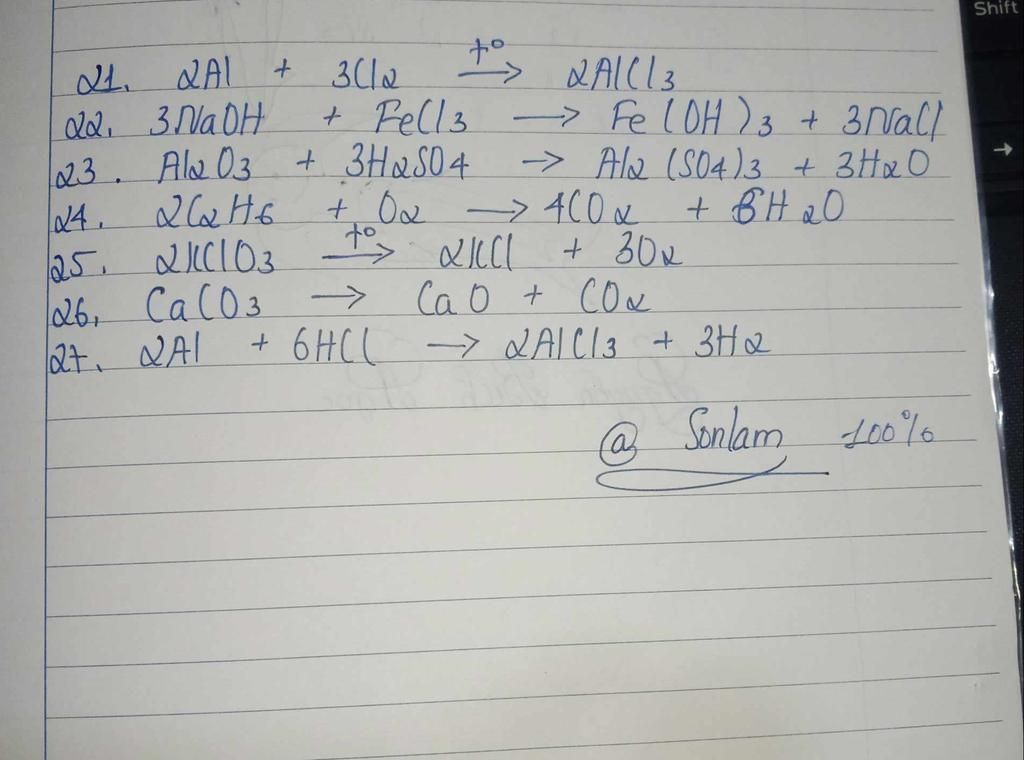 Shift
→
21. 2Al + 3Cl2 t°→ 2AlCl3
22. 3NaOH + FeCl3 → Fe(OH)3 + 3NaCl
23. Al2O3 + 3H2SO4 → Al2(SO4)3 + 3H2O
24. 2C2H6 + O2 → 4CO2 + 6H2O
25. 2KClO3 t°→ 2KCl + 3O2
26. CaCO3 → CaO + CO2
27. 2Al + 6HCl → 2AlCl3 + 3H2
@ Sonlam 100%